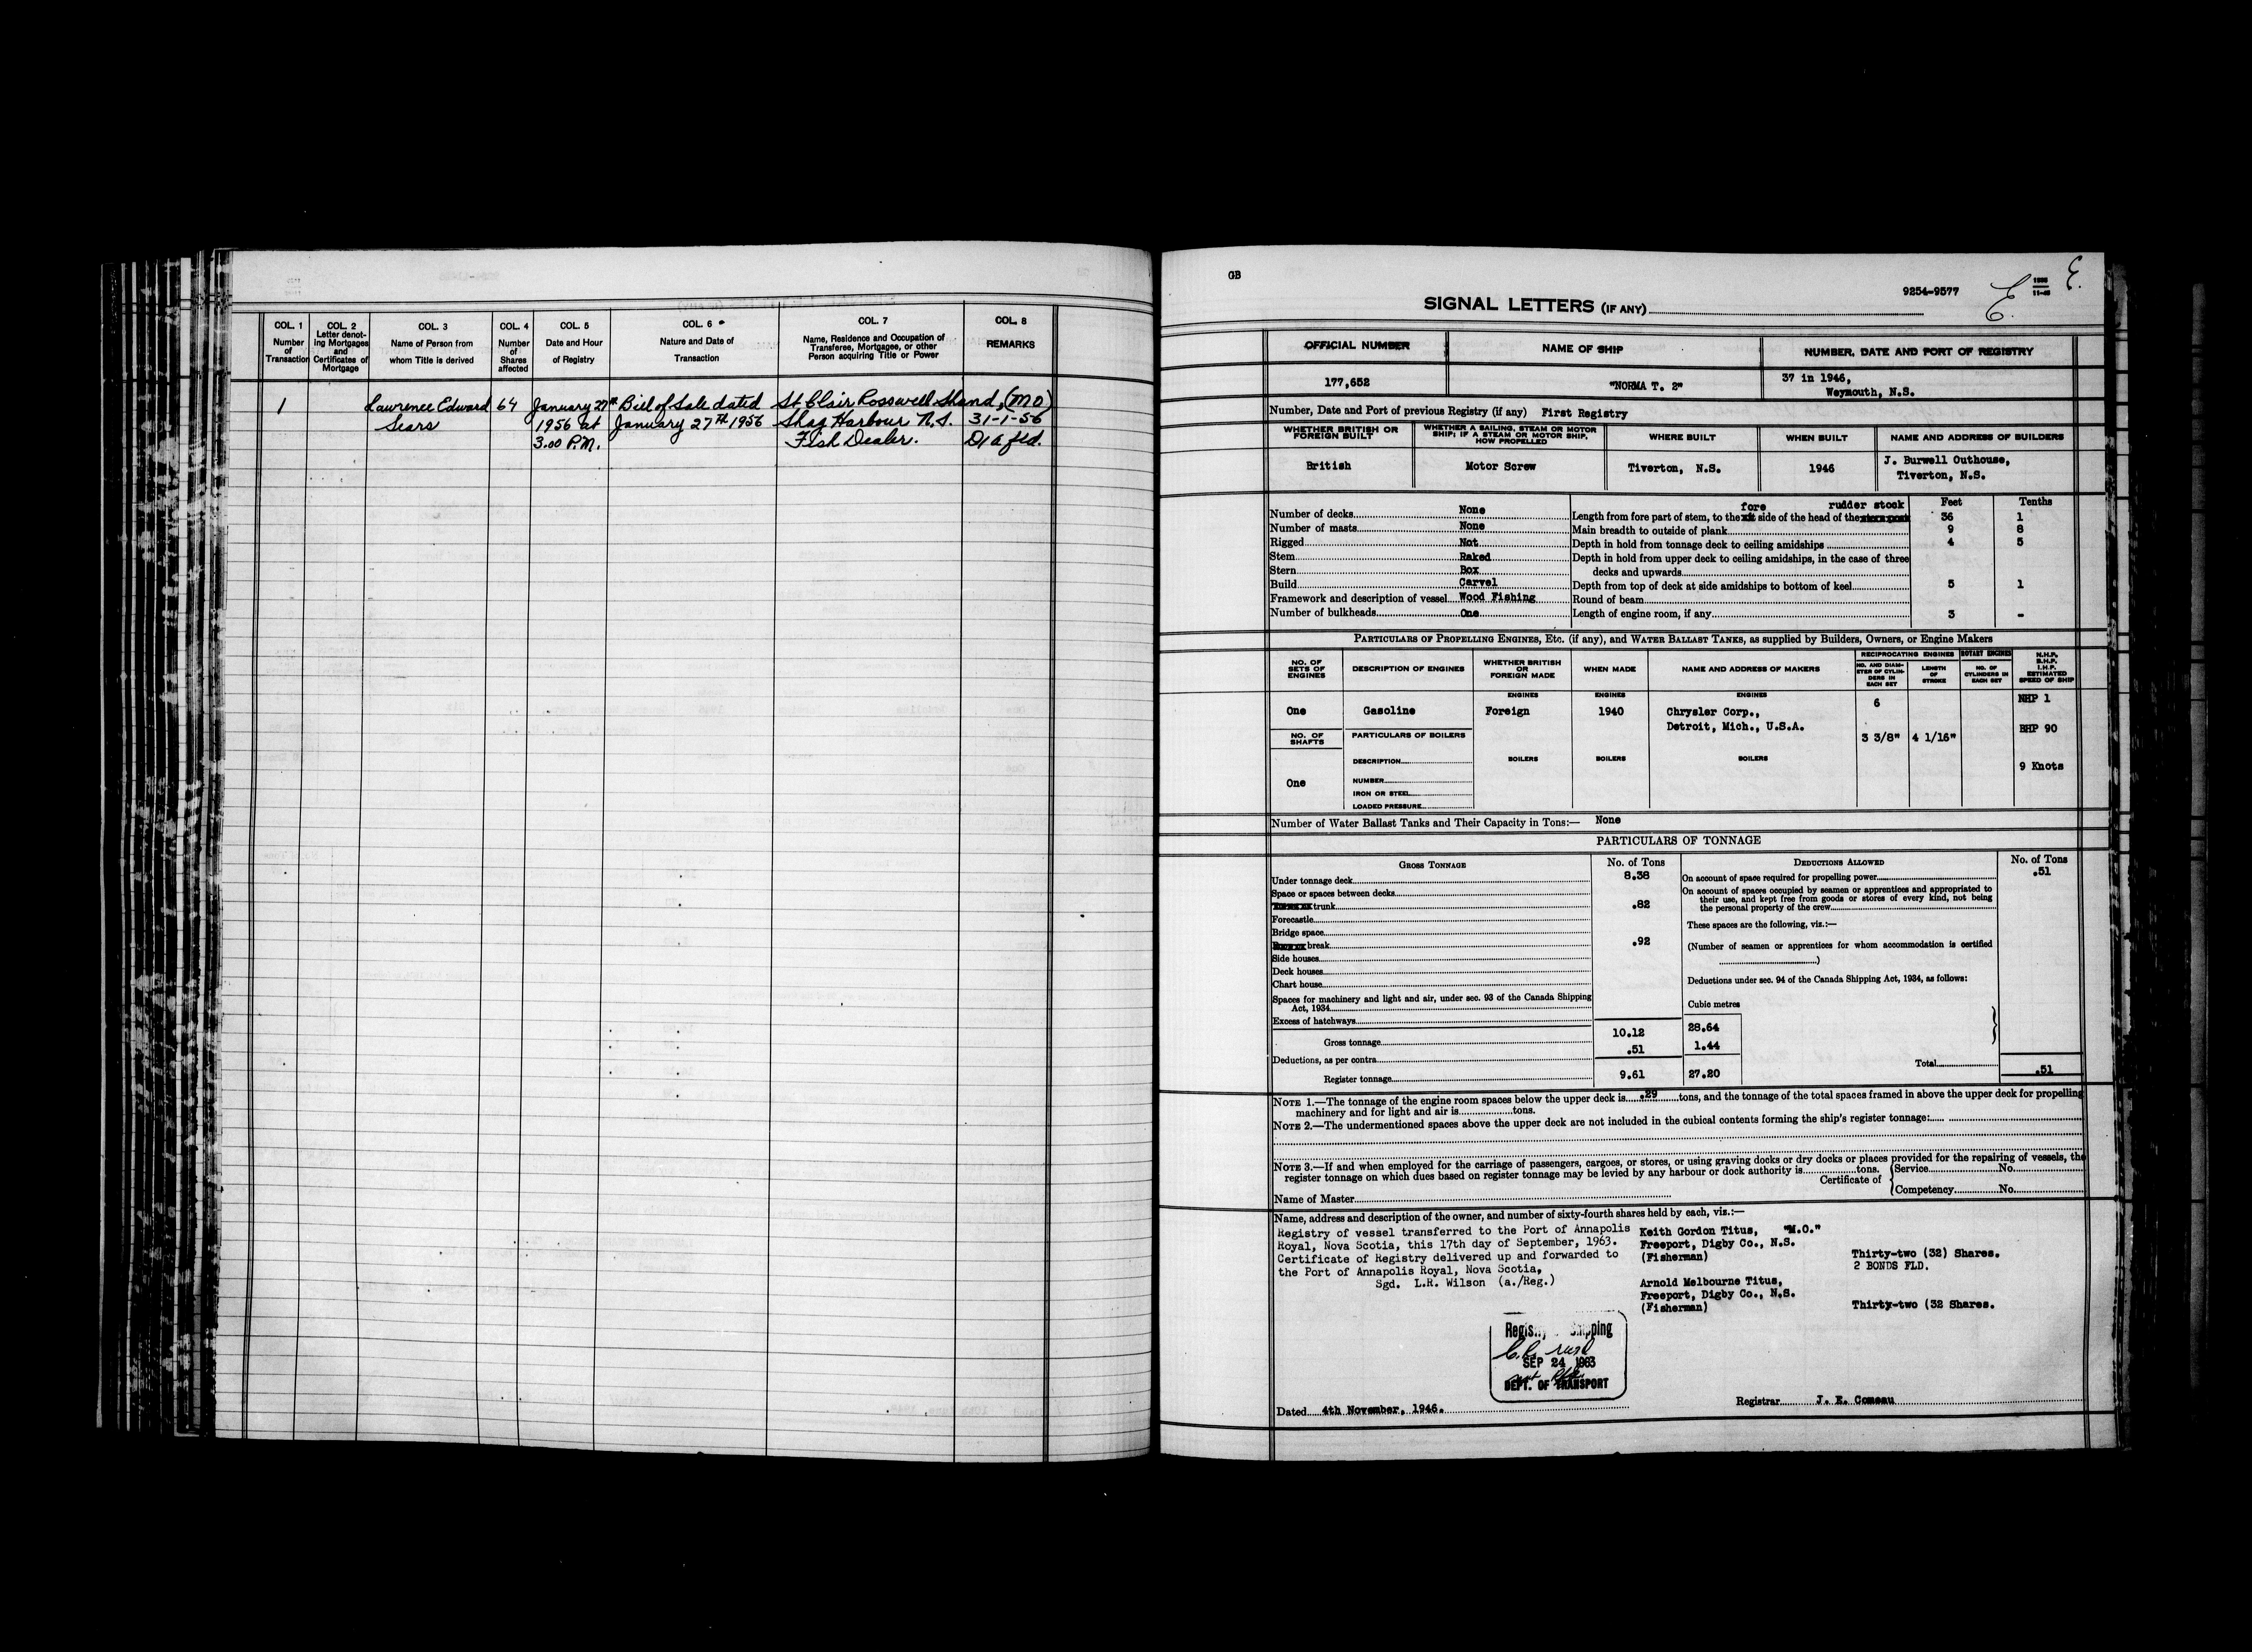 COL. 1
Number
of
Transaction
COL. 2
Letter denot-
ing Mortgages
and
Certificates of
Mortgage
COL. 3
Name of Person from
whom Title is derived
COL. 4
Number
of
Shares
affected
COL. 5
Date and Hour
of Registry
COL. 6
Nature and Date of
Transaction
COL. 7
Name, Residence and Occupation of
Transferee, Mortgagee, or other
Person acquiring Title or Power
COL. 8
REMARKS
1 Lawrence Edward 64 January 27th Bill of Sale dated St. Clair Rosswell Shand, (MO)
Sears 1956 at January 27th 1956 Shag Harbour N.S. 31-1-56
3.00 P.M. Fish Dealer. D/a fld.
GB
9254-9577
E.
1955
11-45
E.
SIGNAL LETTERS (IF ANY)
OFFICIAL NUMBER NAME OF SHIP NUMBER, DATE AND PORT OF REGISTRY
177,652 "NORMA T. 2" 37 in 1946,
Weymouth, N.S.
Number, Date and Port of previous Registry (if any) First Registry
WHETHER BRITISH OR
FOREIGN BUILT
WHETHER A SAILING, STEAM OR MOTOR
SHIP; IF A STEAM OR MOTOR SHIP,
HOW PROPELLED
WHERE BUILT WHEN BUILT NAME AND ADDRESS OF BUILDERS
British Motor Screw Tiverton, N.S. 1946 J. Burwell Outhouse,
Tiverton, N.S.
Number of decks None
Number of masts None
Rigged Not
Stem Raked
Stern Box
Build Carvel
Framework and description of vessel Wood Fishing
Number of bulkheads One
Feet Tenths
fore rudder stock
Length from fore part of stem, to the aft side of the head of the stern post 36 1
Main breadth to outside of plank 9 8
Depth in hold from tonnage deck to ceiling amidships 4 5
Depth in hold from upper deck to ceiling amidships, in the case of three
decks and upwards
Depth from top of deck at side amidships to bottom of keel 5 1
Round of beam
Length of engine room, if any 3 -
PARTICULARS OF PROPELLING ENGINES, ETC. (if any), and WATER BALLAST TANKS, as supplied by Builders, Owners, or Engine Makers
NO. OF
SETS OF
ENGINES
DESCRIPTION OF ENGINES
WHETHER BRITISH
OR
FOREIGN MADE
WHEN MADE
NAME AND ADDRESS OF MAKERS
RECIPROCATING ENGINES
NO. AND DIAM-
ETER OF CYLIN-
DERS IN
EACH SET
LENGTH
OF
STROKE
ROTARY ENGINES
NO. OF
CYLINDERS IN
EACH SET
N.H.P.
B.H.P.
I.H.P.
ESTIMATED
SPEED OF SHIP
ENGINES ENGINES ENGINES
One Gasoline Foreign 1940 Chrysler Corp., 6 NHP 1
Detroit, Mich., U.S.A.
3 3/8" 4 1/16" BHP 90
NO. OF
SHAFTS
PARTICULARS OF BOILERS
BOILERS BOILERS BOILERS
9 Knots
One
DESCRIPTION
NUMBER
IRON OR STEEL
LOADED PRESSURE
Number of Water Ballast Tanks and Their Capacity in Tons:— None
PARTICULARS OF TONNAGE
GROSS TONNAGE No. of Tons
Under tonnage deck 8.38
Space or spaces between decks
trunk .82
Forecastle
Bridge space
break .92
Side houses
Deck houses
Chart house
Spaces for machinery and light and air, under sec. 93 of the Canada Shipping
Act, 1934
Excess of hatchways
Gross tonnage 10.12 28.64
Deductions, as per contra .51 1.44
Register tonnage 9.61 27.20
DEDUCTIONS ALLOWED No. of Tons
On account of space required for propelling power .51
On account of spaces occupied by seamen or apprentices and appropriated to
their use, and kept free from goods or stores of every kind, not being
the personal property of the crew
These spaces are the following, viz.:—
(Number of seamen or apprentices for whom accommodation is certified
)
Deductions under sec. 94 of the Canada Shipping Act, 1934, as follows:
Cubic metres
Total .51
NOTE 1.—The tonnage of the engine room spaces below the upper deck is .29 tons, and the tonnage of the total spaces framed in above the upper deck for propelling
machinery and for light and air is tons.
NOTE 2.—The undermentioned spaces above the upper deck are not included in the cubical contents forming the ship's register tonnage:
NOTE 3.—If and when employed for the carriage of passengers, cargoes, or stores, or using graving docks or dry docks or places provided for the repairing of vessels, the
register tonnage on which dues based on register tonnage may be levied by any harbour or dock authority is tons.
Certificate of Service No.
Competency No.
Name of Master
Name, address and description of the owner, and number of sixty-fourth shares held by each, viz.:—
Registry of vessel transferred to the Port of Annapolis
Royal, Nova Scotia, this 17th day of September, 1963.
Certificate of Registry delivered up and forwarded to
the Port of Annapolis Royal, Nova Scotia,
Sgd. L.R. Wilson (a./Reg.)
Keith Gordon Titus, "M.O."
Freeport, Digby Co., N.S.
(Fisherman) Thirty-two (32) Shares.
2 BONDS FLD.
Arnold Melbourne Titus,
Freeport, Digby Co., N.S.
(Fisherman) Thirty-two (32 Shares.
Shipping
SEP 24 1963
DEPT. OF TRANSPORT
Dated 4th November, 1946.
Registrar J. E. Comeau